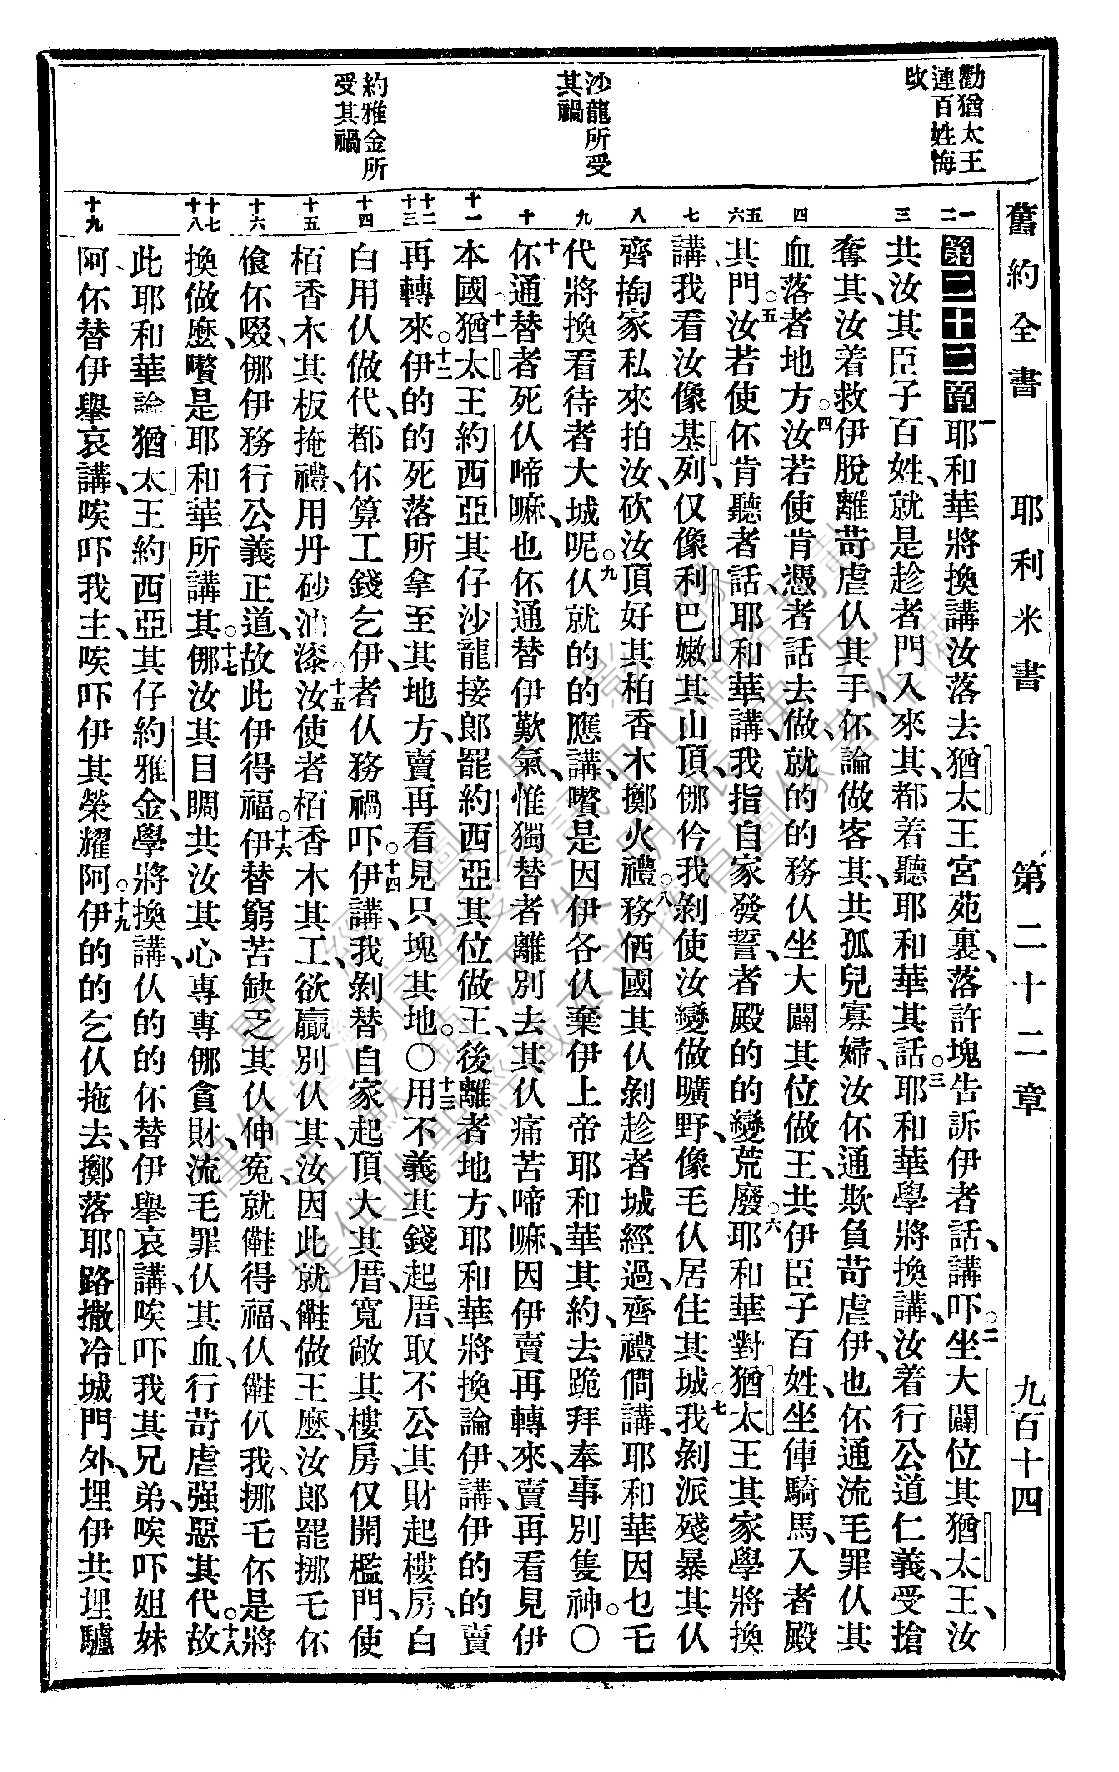 舊約全書 耶利米書 第二十二章 九百十四
勸猶太王
連百姓悔
改
沙龍所受
其禍
約雅金所
受其禍
一二 三 四 五六 七 八 九 十 十一 十二十三 十四 十五 十六 十七十八 十九
第二十二章一耶和華將換講汝落去猶太王宮苑裏、落許塊告訴伊者話、講吓。二坐大闢位其猶太王、汝
共汝其臣子百姓、就是趁者門入來其、都着聽耶和華其話。三耶和華學將換講、汝着行公道仁義、受搶
奪其、汝着救伊脫離苛虐仈其手、伓論做客其、共孤兒寡婦、汝伓通欺負苛虐伊、也伓通流毛罪仈其
血落者地方。四汝若使肯憑者話去做、就的的務仈坐大闢其位做王、共伊臣子百姓、坐俥騎馬、入者殿
其門。五汝若使伓肯聽者話、耶和華講、我指自家發誓、者殿的的變荒廢。六耶和華對猶太王其家、學將換
講、我看汝像基列、仅像利巴嫩其山頂、倻伶我剝使汝變做曠野、像毛仈居住其城。七我剝派殘暴其仈
齊掏家私來拍汝、砍汝頂好其柏香木擲火禮。八務価國其仈剝趁者城經過、齊禮倜講、耶和華因乜乇
代將換看待者大城呢。九仈就的的應講、嚽是因伊各仈棄伊上帝耶和華其約、去跪拜奉事別隻神。〇
十伓通替者死仈啼嘛、也伓通替伊歎氣、惟獨替者離別去其仈痛苦啼嘛、因伊賣再轉來、賣再看見伊
本國。十一猶太王約西亞其仔沙龍、接郎罷約西亞其位做王、後離者地方、耶和華將換論伊講、伊的的賣
再轉來。十二伊的的死落所拿至其地方、賣再看見只塊其地。〇十三用不義其錢起厝、取不公其財起樓房、白
白用仈做代、都伓算工錢乞伊、者仈務禍吓。十四伊講、我剝替自家起頂大其厝、寬敞其樓房、仅開檻門、使
栢香木其板掩禮、用丹砂油漆。十五汝使者栢香木其工、欲贏別仈其、汝因此就㒡做王麼、汝郎罷挪乇伓
飧伓啜、倻伊務行公義正道、故此伊得福。十六伊替窮苦缺乏其仈伸寃、就㒡得福、仈㒡仈我、挪乇伓是將
換做麼、嚽是耶和華所講其。十七倻汝其目睭共汝其心、專專倻貪財、流毛罪仈其血、行苛虐强惡其代。十八故
此耶和華論猶太王約西亞其仔約雅金、學將換講、仈的的伓替伊舉哀講、唉吓我其兄弟、唉吓姐妹
阿伓替伊舉哀講、唉吓我主、唉吓伊其榮耀阿。十九伊的的乞仈拖去、擲落耶路撒冷城門外、埋伊共埋驢